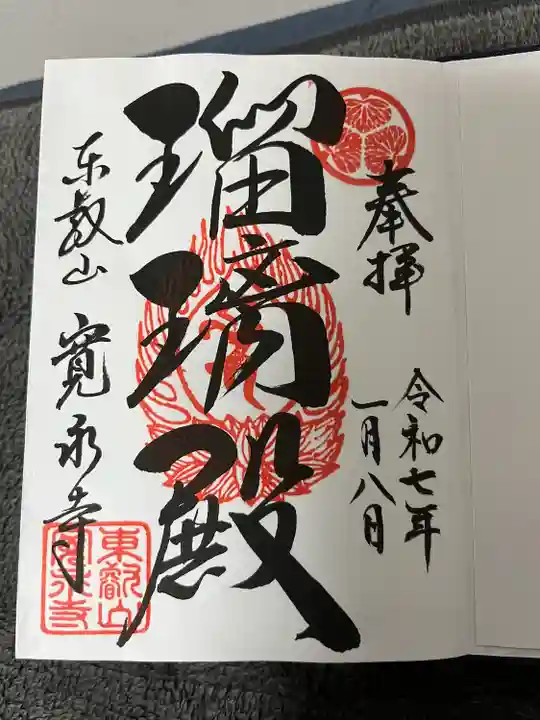 奉拝
令和七年
一月八日
瑠璃殿
東叡山 寛永寺
東叡山
寛永寺